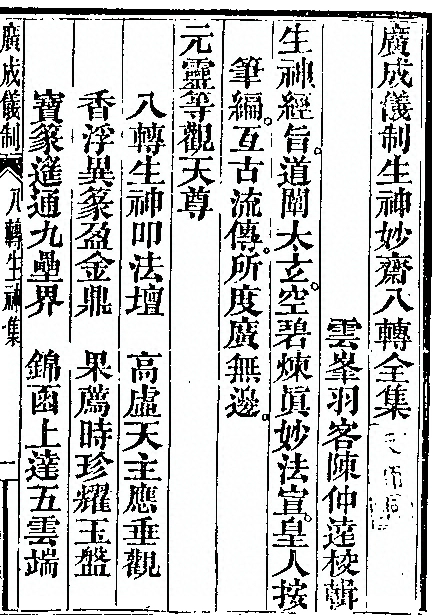 廣成儀制生神妙齋八轉全集
雲峯羽客陳仲遠校輯
生神經旨。道闡太玄。空碧煉眞妙法宣。皇人按
筆編。互古流傳。所度廣無邊。
元靈等觀天尊
八轉生神叩法壇　高虛天主應垂觀
香浮異篆盈金鼎　果薦時珍耀玉盤
寶篆遙通九壘界　錦函上達五雲端
廣成儀制　八轉生神集　一